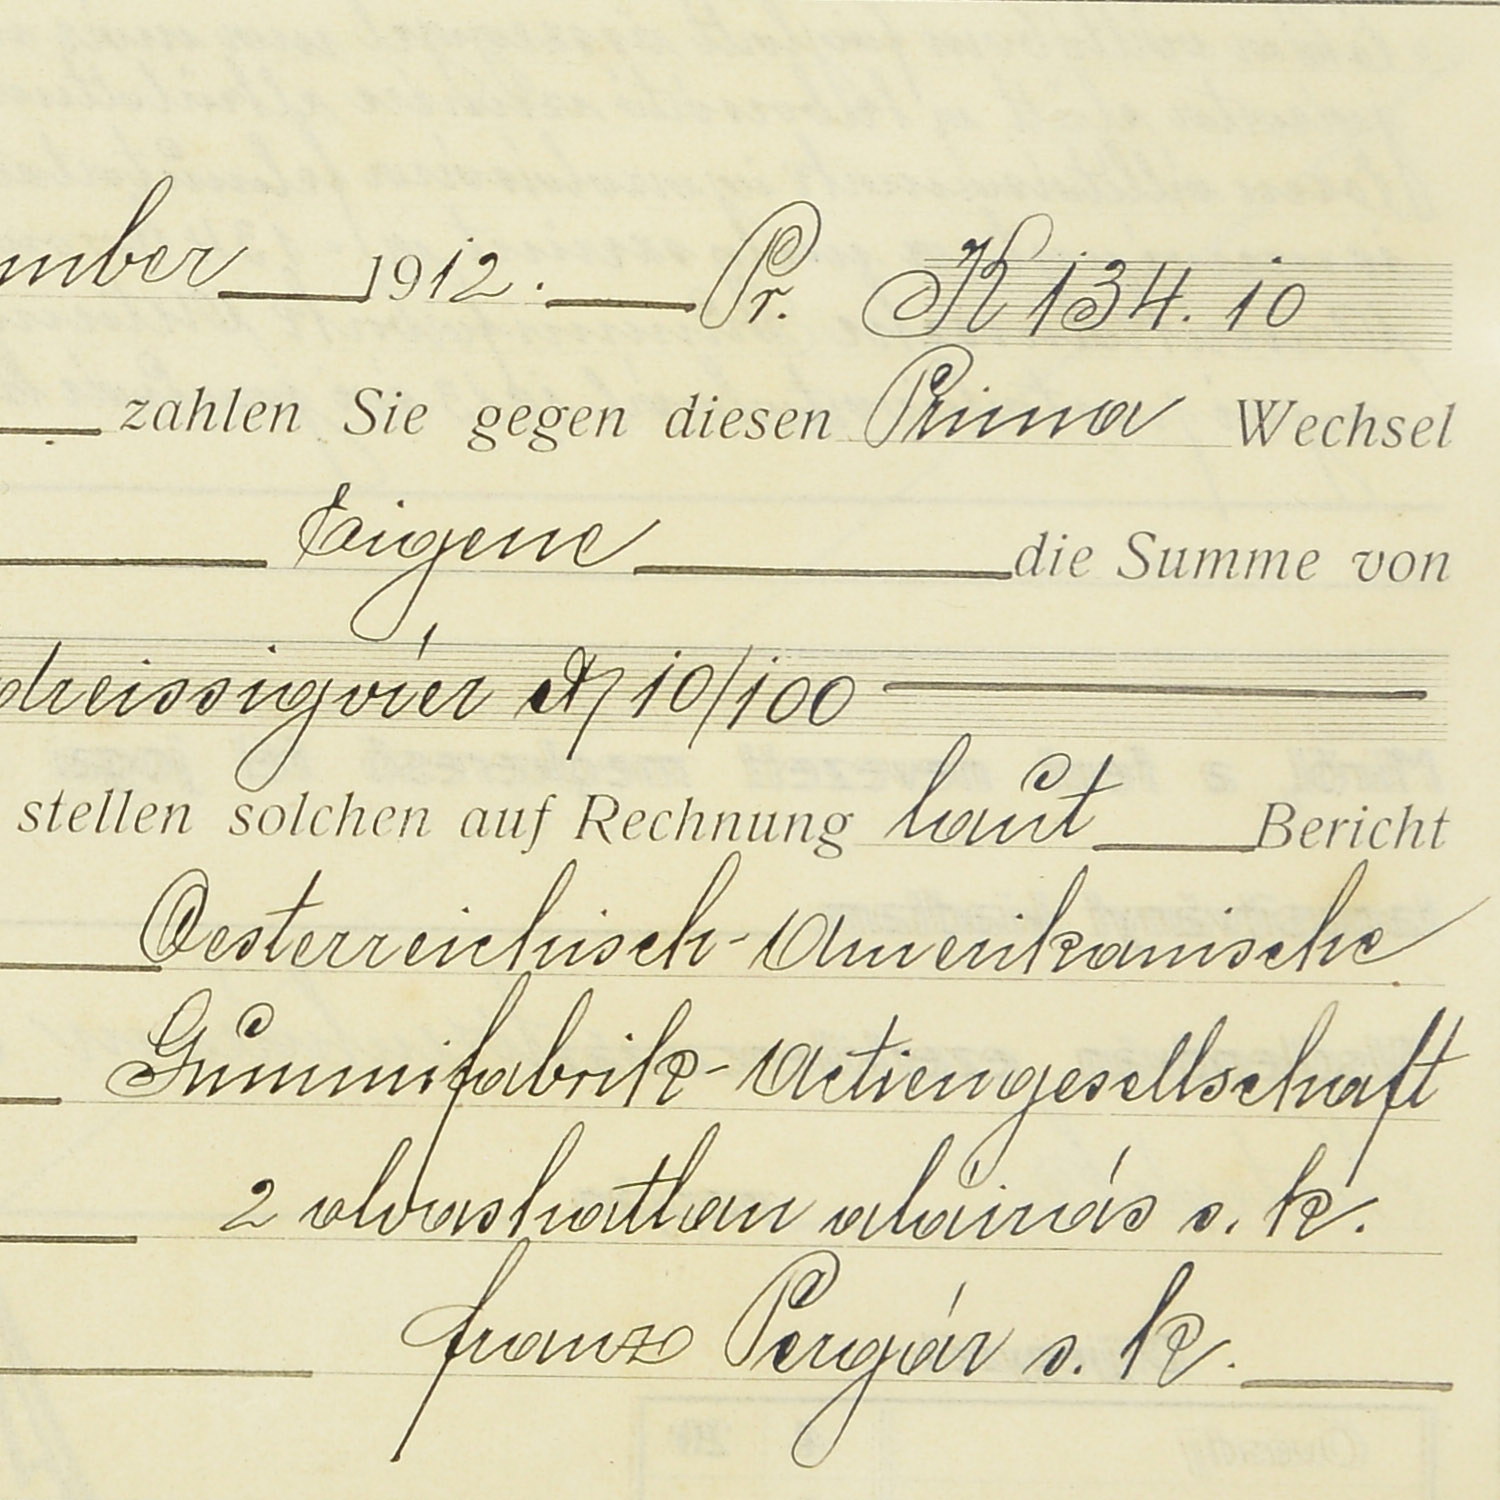 mber 1912. Pr. K 134. 10
zahlen Sie gegen diesen Prima Wechsel
Eigene die Summe von
dreissigvier & 10/100
stellen solchen auf Rechnung laut Bericht
Oesterreichisch-Amerikanische
Gummifabrik-Actiengesellschaft
2 olvashatlan aláirás s. k.
Franz Pergár s. k.